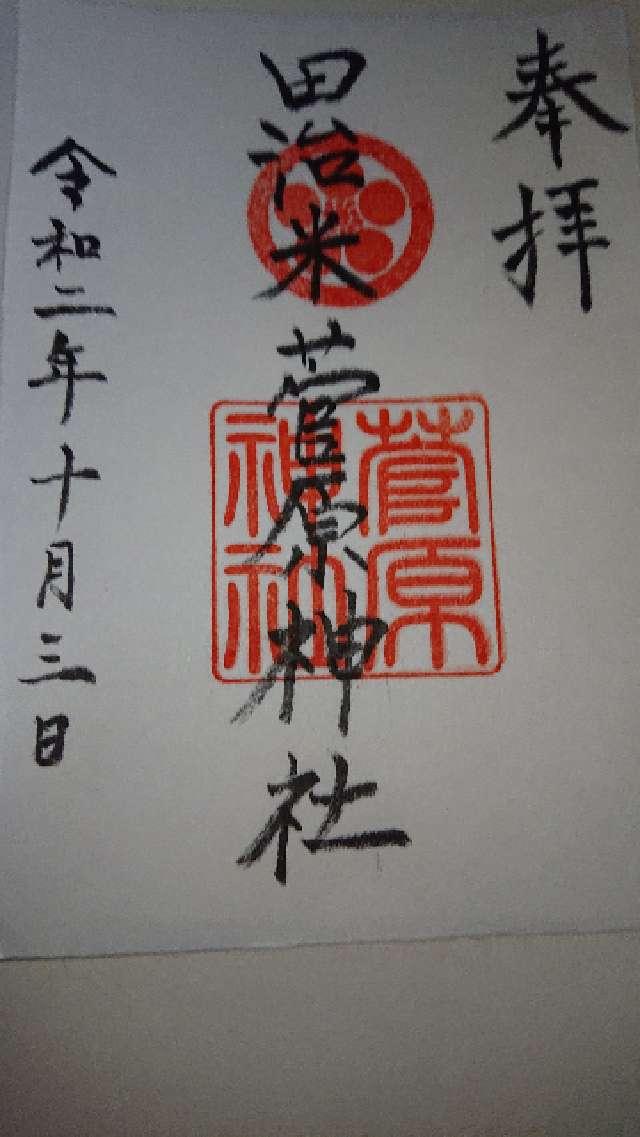 奉拝
田治米菅原神社
菅原
神社
令和二年十月三日